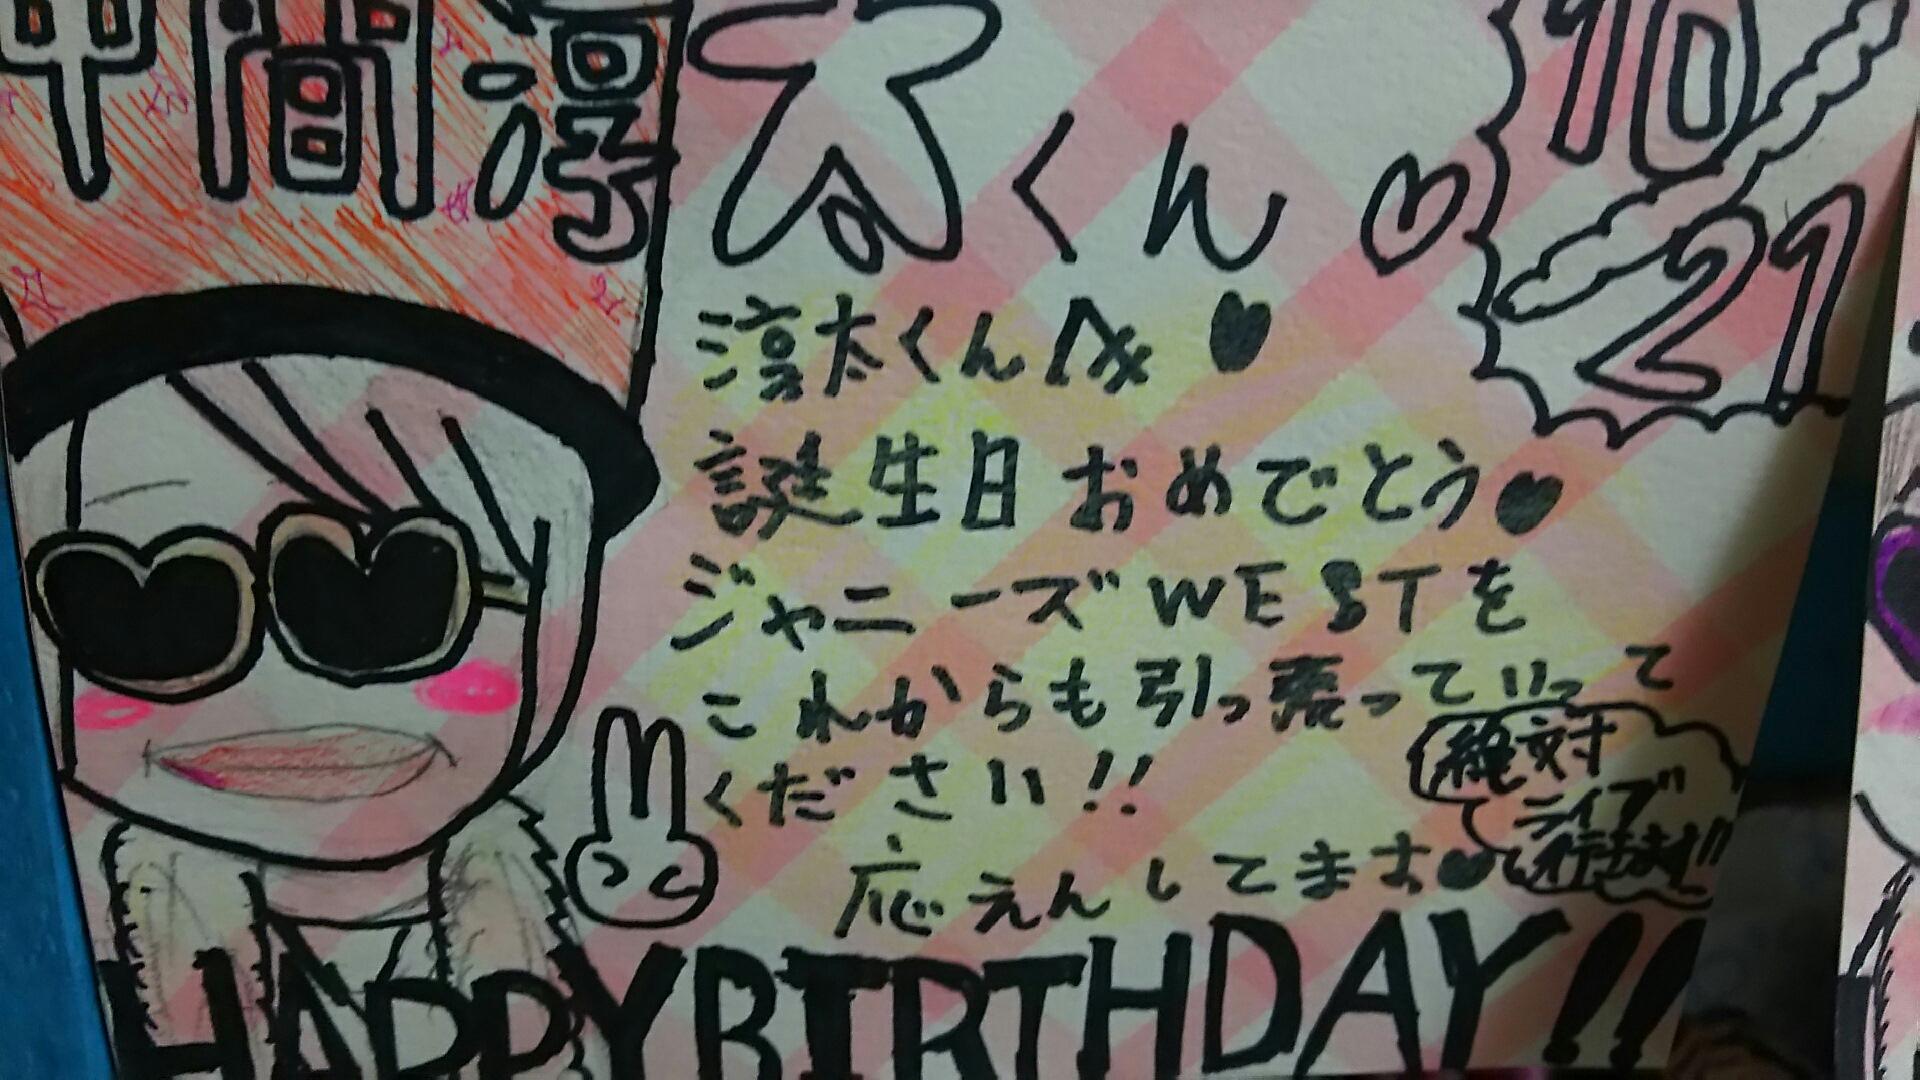 中間淳太くん♡
10/21
淳太くんへ♥
誕生日おめでとう♥
ジャニーズWESTを
これからも引っ張っていって
ください!!
応えんしてます♥
絶対
ライブ
行きます!!
HAPPYBIRTHDAY!!